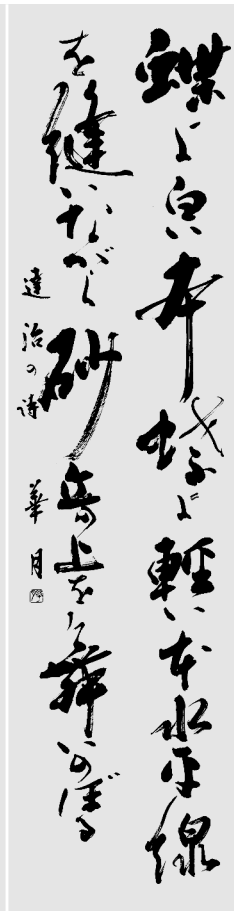 蝶よ白い本蝶よ輕い本水平線
を縫いながら砂丘の上を舞いのぼる
達治の詩 華月